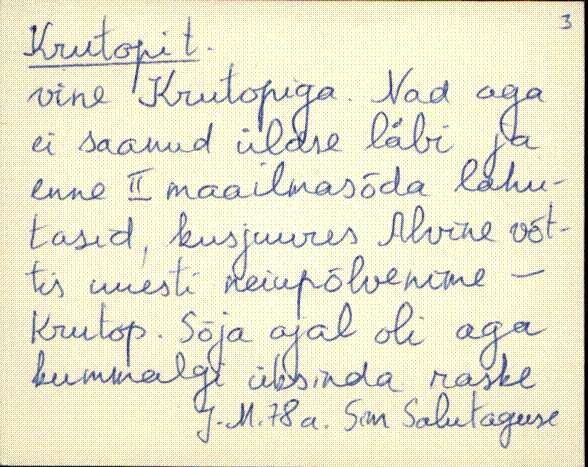 3
Krutopi t.
vine Krutopiga. Nad aga
ei saanud üldse läbi ja
enne II maailmasõda lahu-
tasid, kusjuures Alvine võt-
tis uuesti neiupõlvenime -
Krutop. Sõja ajal oli aga
kummalgi üksinda raske
J. M. 78 a. Sim Salutaguse